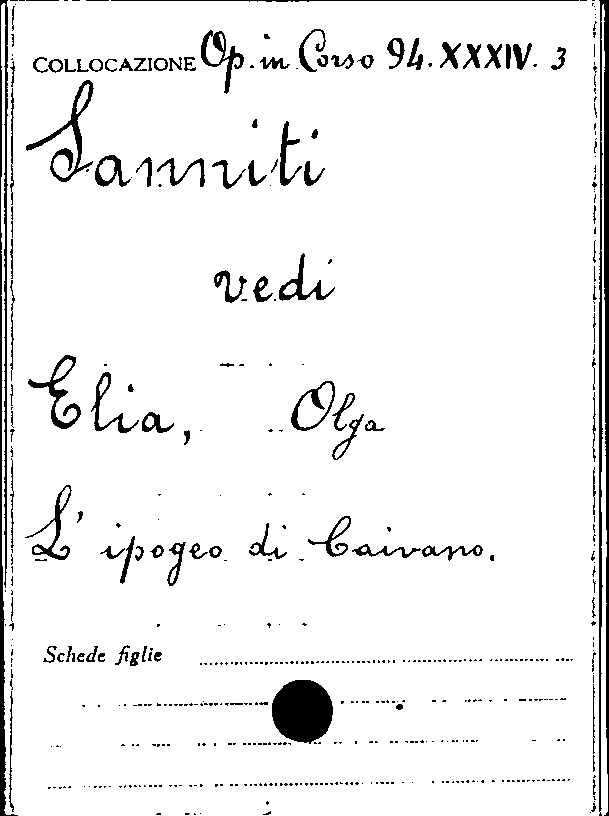 COLLOCAZIONE Op. in Corso 94. XXXIV. 3
Sanniti
vedi
Elia, Olga
L' ipogeo di Caivano.
Schede figlie